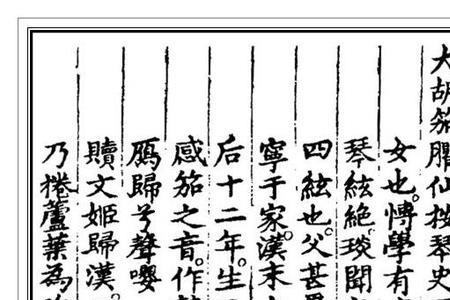 大胡笳臞仙按琴史
女也。博學有
琴絃絶。琰聞
四絃也。父甚
寧于家。漢末
后十二年。生
感笳之音。作
鴈歸兮聲嚶
贖文姬歸漢。
乃捲蘆葉為